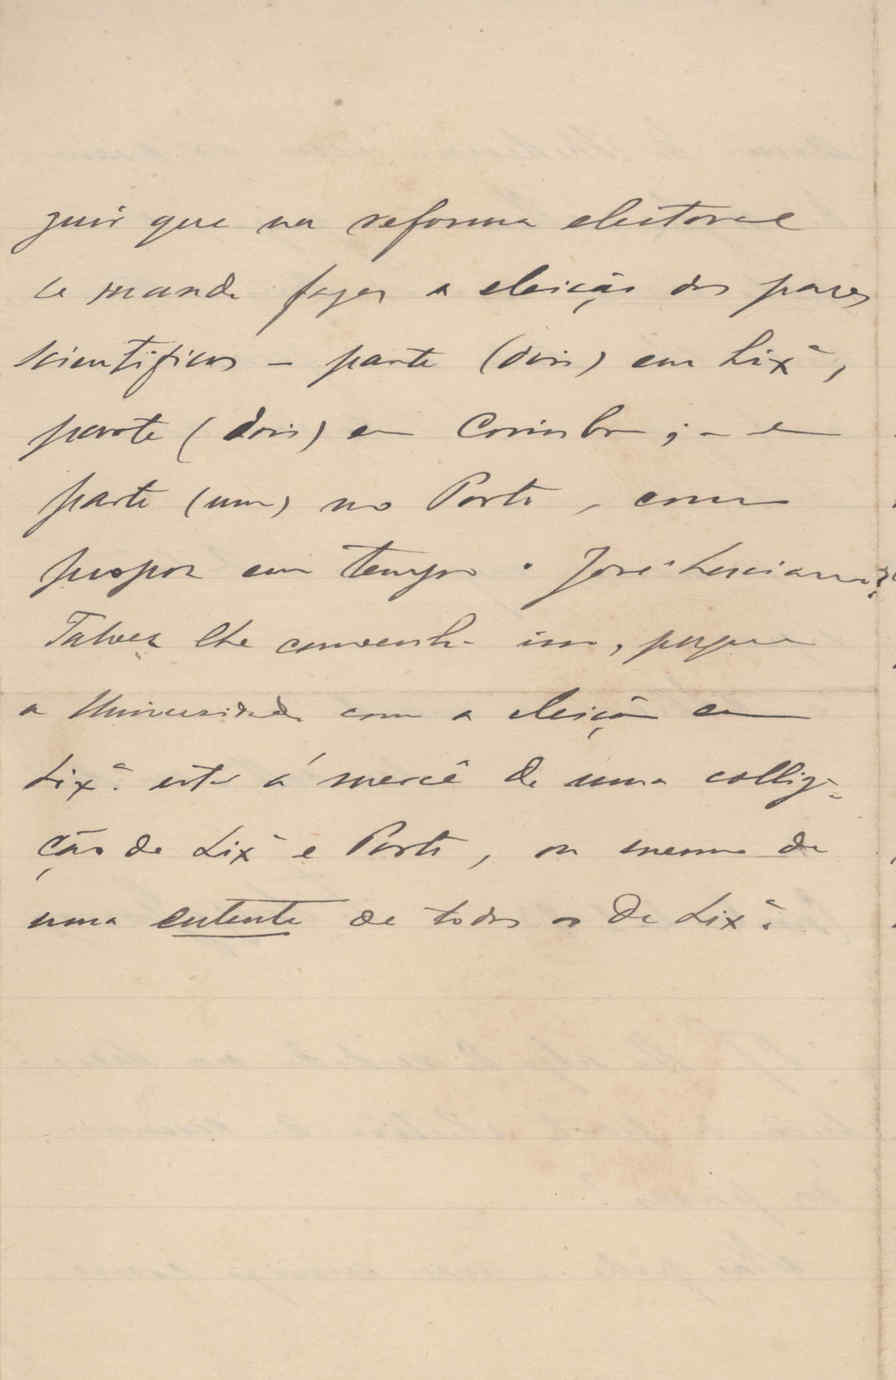 guir que na reforma eleitoral
se mande fazer a eleição dos pares
scientificos – parte (dois) em Lixª,
parte (dois) em Coimbra; – e
parte (um) no Porto, como
propoz em tempo o José Luciano?
Talvez lhe convenha isso, porque
a Universidade com a eleição em
Lixª. está á mercê de uma colliga-
ção de Lixª e Porto, ou mesmo de
uma entente de todos os de Lixª.